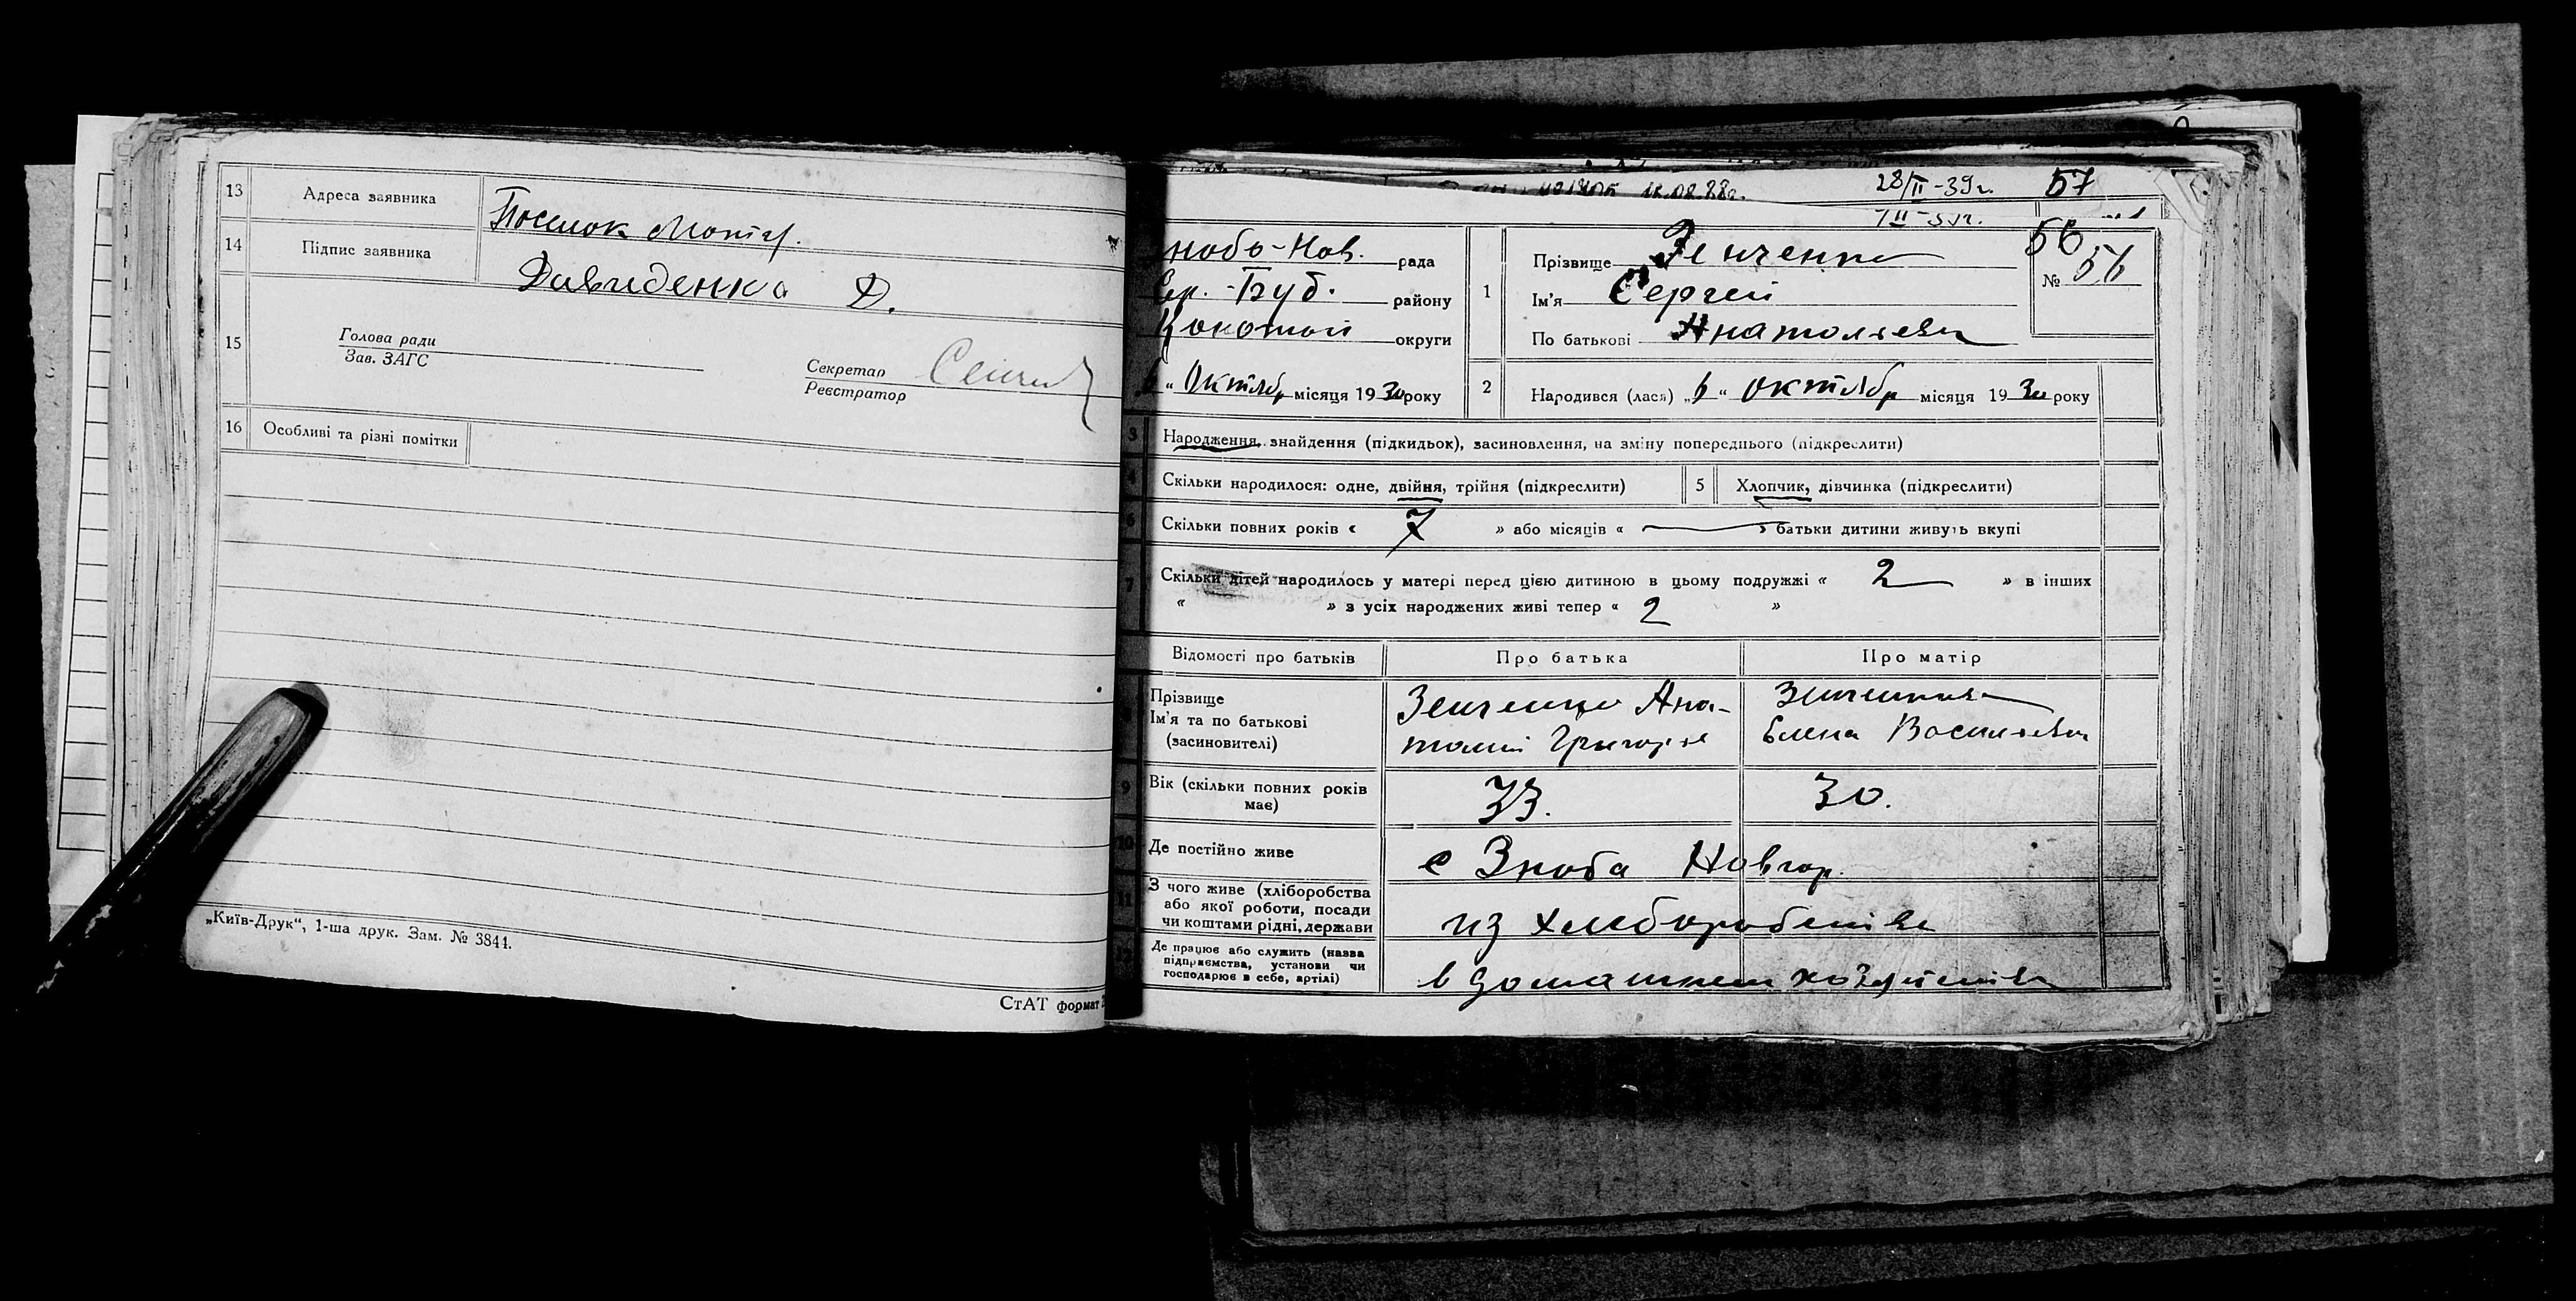 13 Адреса заявника
Поселок
14 Підпис заявника
Давиденко Д.
15 Голова ради
Зав. ЗАГС
Секретар
Реєстратор
16 Особливі та різні помітки
„Київ-Друк“, 1-ша друк. Зам. № 3841.
СтАТ формат
28/II-39г. 57
нобо-Нов. рада
Сер.-Буд. району
округи
6 “ Октябр місяця 1930 року
1 Прізвище Зенченко
Ім’я Сергей
По батькові Анатольев
56
№ 56
2 Народився (лася) „6“ октябр місяця 1930 року
3 Народження, знайдення (підкидьок), засиновлення, на зміну попереднього (підкреслити)
4 Скільки народилося: одне, двійня, трійня (підкреслити) 5 Хлопчик, дівчинка (підкреслити)
6 Скільки повних років « 7 » або місяців « — » батьки дитини живуть вкупі
7 Скільки дітей народилось у матері перед цією дитиною в цьому подружжі « 2 » в інших
« » з усіх народжених живі тепер « 2 »
Відомості про батьків Про батька Про матір
Прізвище
Ім’я та по батькові
(засиновителі)
Зенченко Ана-
толий Григорье
Зенченкова
Елена Васильевн
9 Вік (скільки повних років
має)
33. 30.
10 Де постійно живе с Зноба Новгор.
11 З чого живе (хліборобства
або якої роботи, посади
чи коштами рідні, держави
из хлеборобства
Де працює або служить (назва
підприємства, установи чи
господарює в себе, артілі)
в домашнем хозяйстве